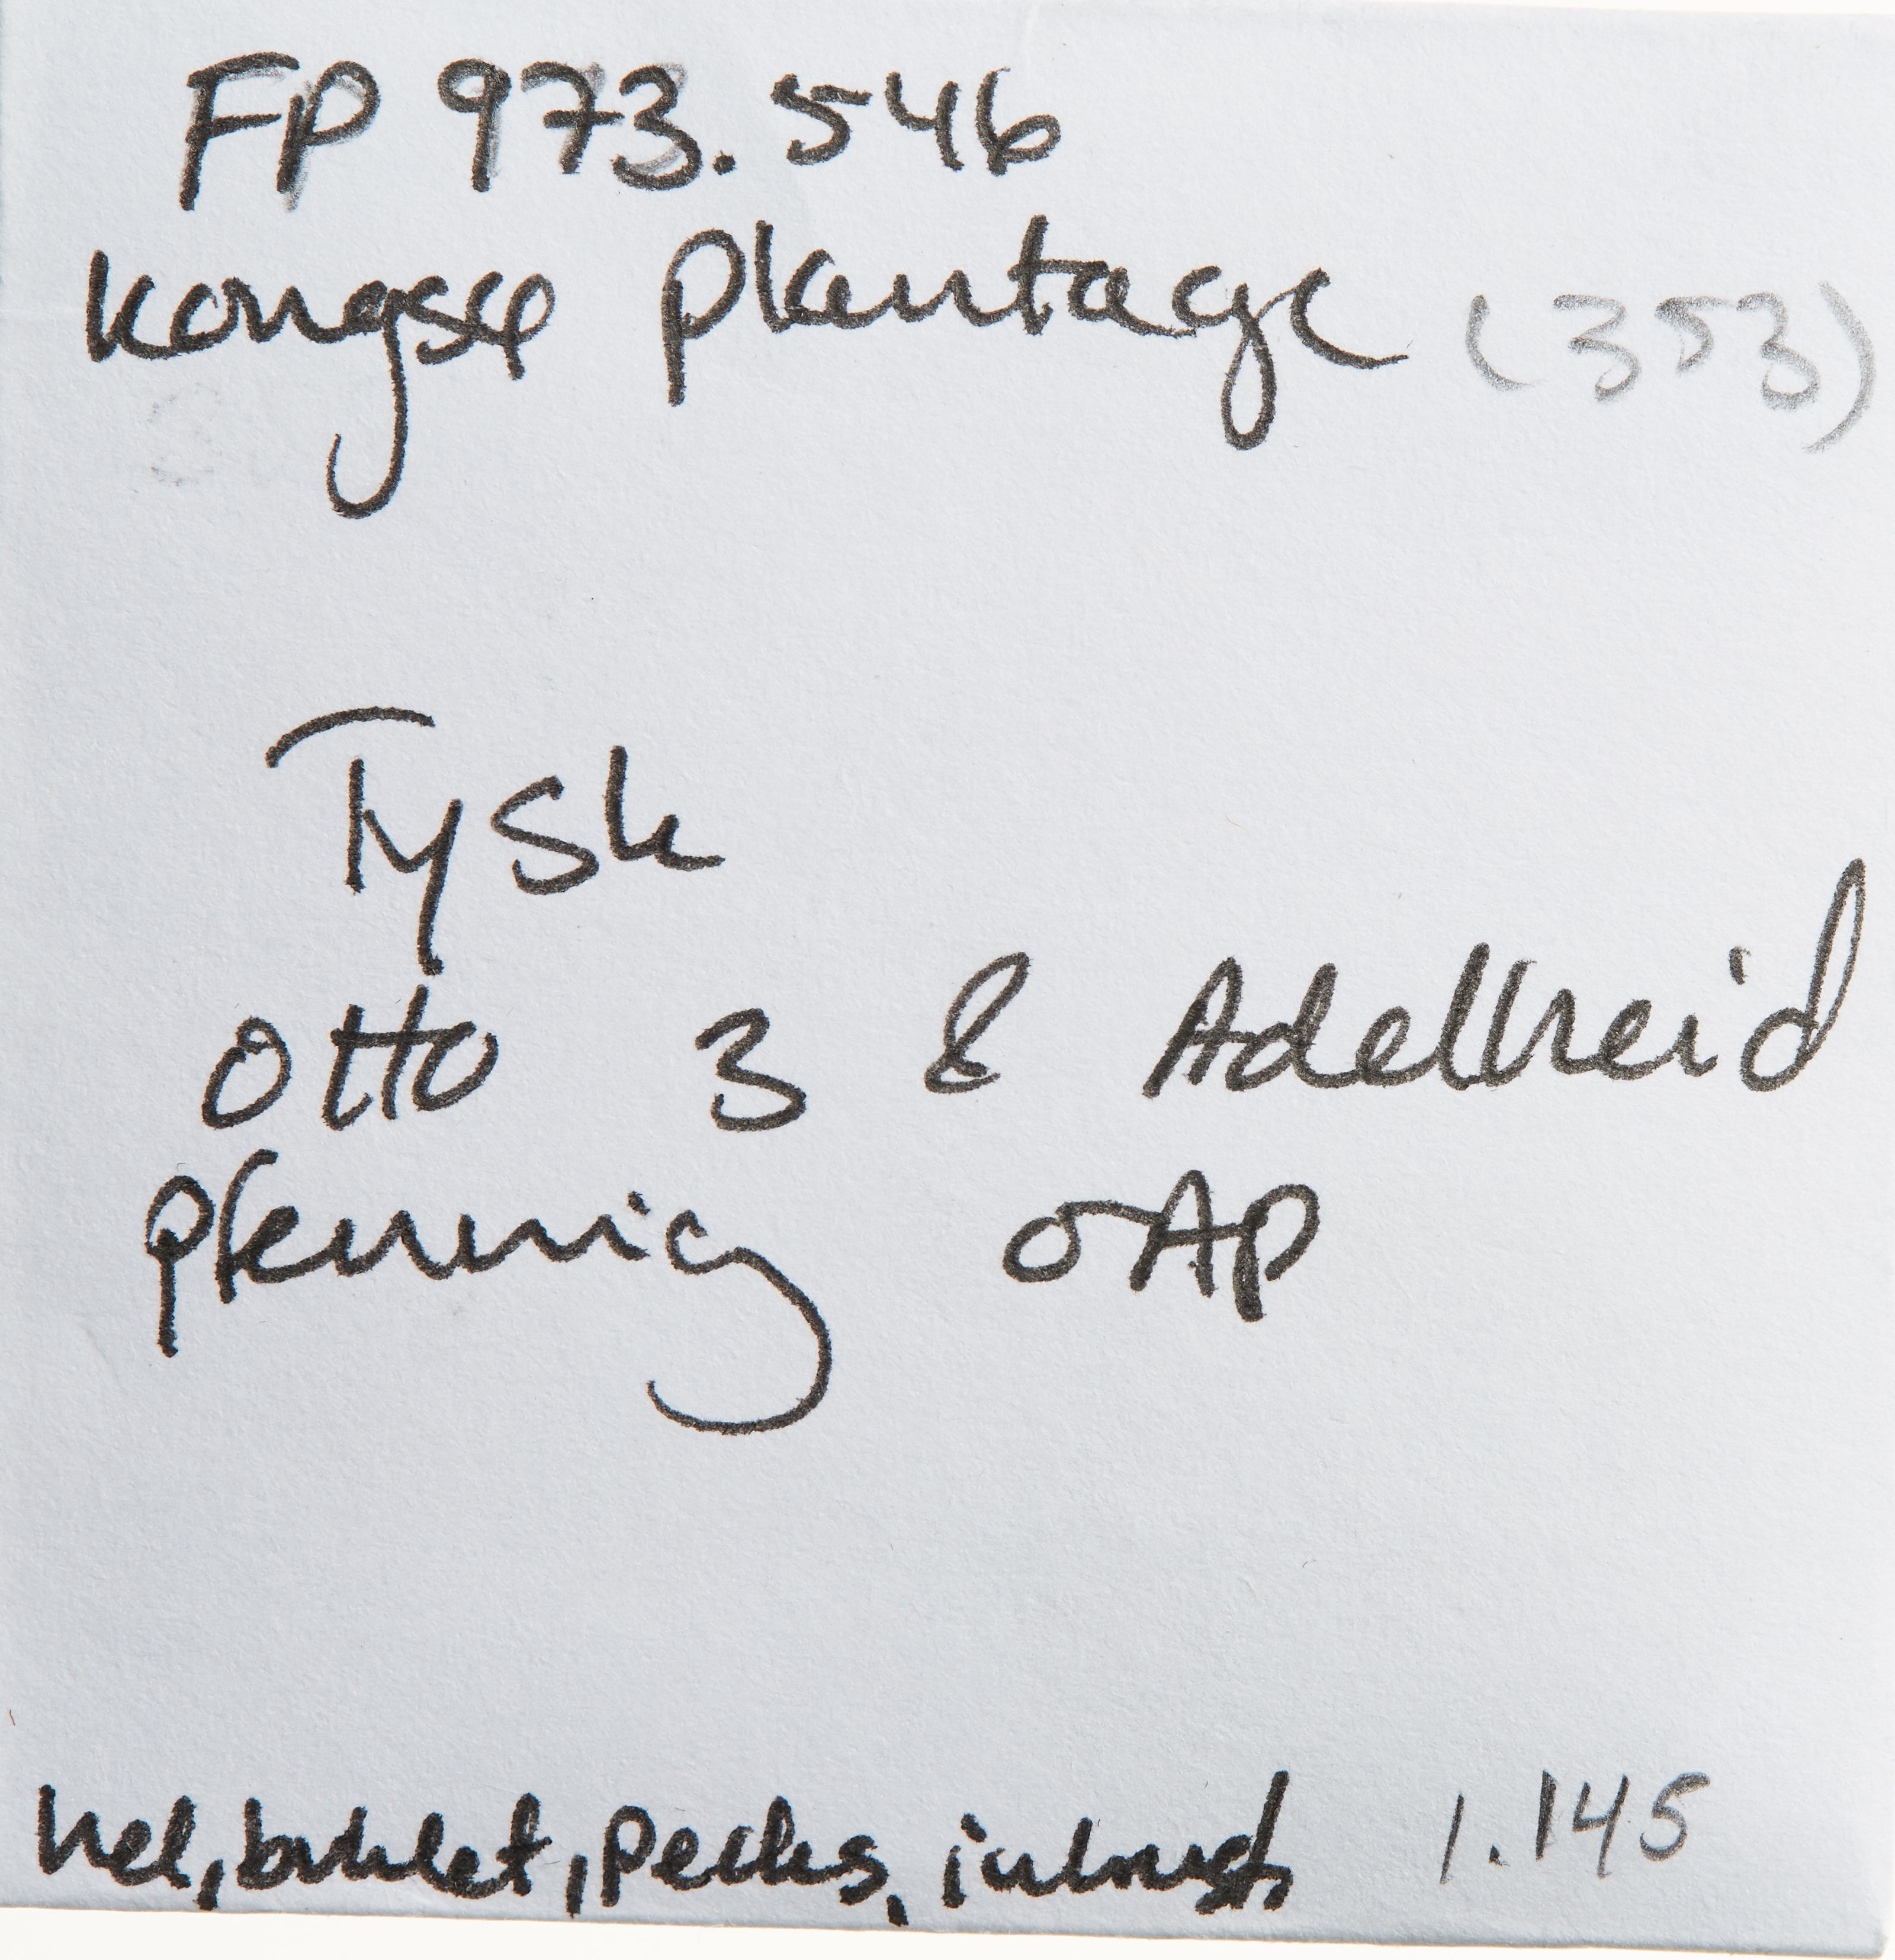 FP 973.546
Kongsø Plantage (353)
Tysk
Otto 3 & Adelheid
Pfennig OAP
hel, buklet, pecks,
1.145